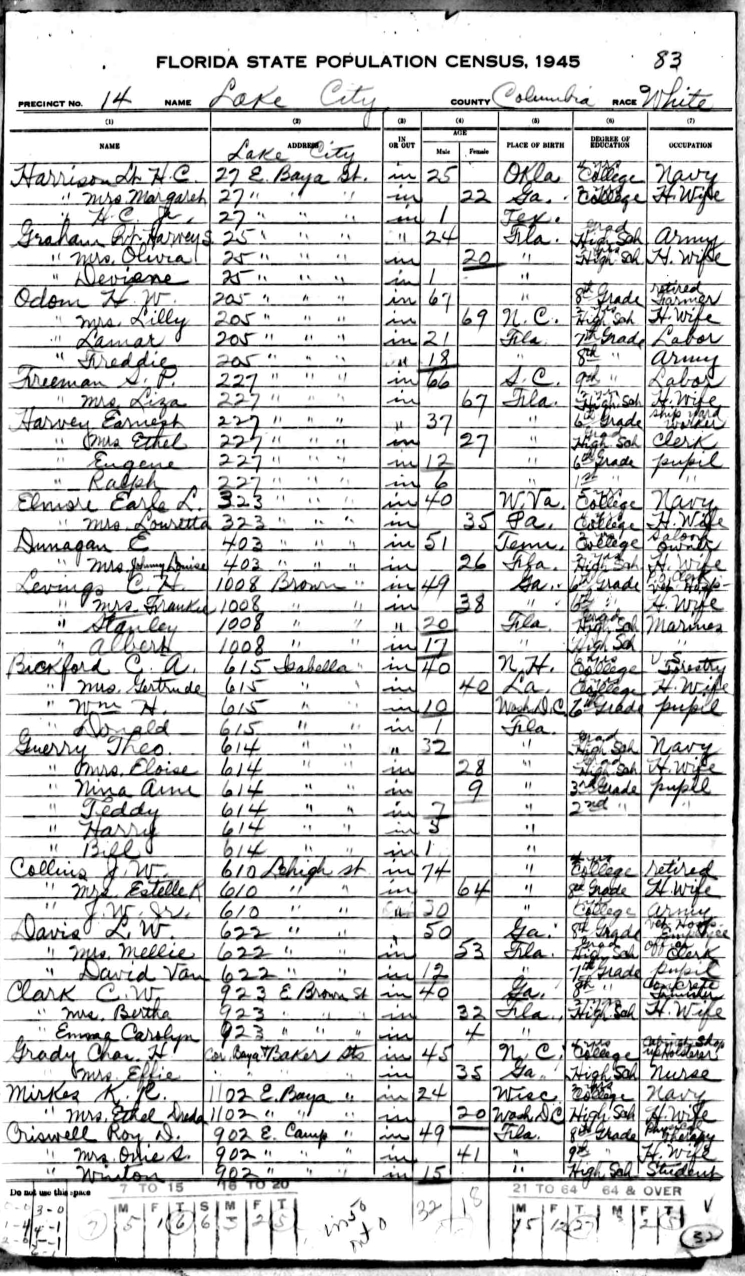 83
FLORIDA STATE POPULATION CENSUS, 1945
PRECINCT NO. 14 NAME Lake City COUNTY Columbia RACE White
(1) (2) (3) (4) (5) (6) (7)
NAME ADDRESS IN OR OUT AGE Male Female PLACE OF BIRTH DEGREE OF EDUCATION OCCUPATION
Lake City
Harrison Lt. H.C. 27 E. Baya St. in 25 Okla. College Navy
" Mrs. Margaret 27 " " " in 22 Ga. College H. Wife
" H.C. Jr. 27 " " " in 1 Tex.
Graham Pvt. Harvey S. 25 " " " " 24 Fla. grad High Sch Army
" Mrs. Olivia 25 " " " in 20 " High Sch H. Wife
" 25 " " " in 1 "
Odom H. W. 205 " " " in 67 " 8th Grade retired Farmer
" Mrs. Lilly 205 " " " in 69 N.C. High Sch H. Wife
" Lamar 205 " " " in 21 Fla. 7th Grade Labor
" Freddie 205 " " " " 18 " 8th " Army
Freeman S. P. 227 " " " in 66 S.C. 9th " Labor
" Mrs. Liza 227 " " " in 67 Fla. High Sch H. Wife
Harvey Earnest 227 " " " " 37 " 6th Grade ship yard worker
" Mrs Ethel 227 " " " in 27 " grad High Sch Clerk
" Eugene 227 " " " in 12 " 6th Grade pupil
" Ralph 227 " " " in 6 " 1st " "
Elmore Earle L. 323 " " " in 40 W. Va. College Navy
" Mrs. Louretta 323 " " " in 35 Pa. College H. Wife
Dunagan E 403 " " " in 51 Tenn. College Saloon owner
" Mrs. Johnny Louise 403 " " " in 26 Fla. High Sch H. Wife
Levings C. H. 1008 Brown " in 49 Ga. 6th Grade
" Mrs. Frankie 1008 " " in 38 " 6th " H. Wife
" Stanley 1008 " " " 20 Fla. grad High Sch Marines
" Albert 1008 " " in 17 " High Sch "
Bickford C. A. 615 Isabella " in 40 N.H. College U.S. Forestry
" Mrs. Gertrude 615 " " in 40 La. College H. Wife
" Wm H. 615 " " in 10 Wash. D.C. 6th Grade pupil
" Donald 615 " " in 1 Fla.
Guerry Theo. 614 " " " 32 " grad High Sch Navy
" Mrs. Eloise 614 " " in 28 " grad High Sch H. Wife
" Nina Ann 614 " " in 9 " 3rd Grade pupil
" Teddy 614 " " in 7 " 2nd " "
" Harry 614 " " in 5 "
" Bill 614 " " in 1 "
Collins J. W. 610 Lehigh st in 74 " 4 yrs College retired
" Mrs. Estelle R 610 " " in 64 " 8th Grade H. Wife
" J. W. Jr. 610 " " 30 " College Army
Davis L. W. 622 " " " 50 Ga. 8th Grade Vet. Hosp. Employee
" Mrs. Mellie 622 " " in 53 Fla. grad High Sch office Clerk
" David Van 622 " " in 12 " 7th Grade pupil
Clark C. W. 923 E Brown St in 40 Ga. 8th " Concrete
" Mrs. Bertha 923 " " " in 32 Fla. High Sch H. Wife
" Carolyn 923 " " " in 4 "
Grady Chas. H Cor. Baya & Baker Sts in 45 N.C. College upholsterer
" Mrs. Effie " " " in 35 Ga. High Sch Nurse
Mirkes K. R. 1102 E. Baya " in 24 Wisc. College Navy
" Mrs. Ethel Dreda 1102 " " " in 20 Wash. D.C. High Sch H. Wife
Criswell Roy D. 902 E. Camp " in 49 Fla. 8th Grade Physical Therapy
" Mrs. Orie S. 902 " " " in 41 " 9th " H. Wife
" Winton 902 " " " in 15 " High Sch Student
Do not use this space
7 TO 15 16 TO 20 21 TO 64 64 & OVER
M F T S M F T M F T M F T
7 5 1 6 6 3 2 5 in 50 out 0 32 18 15 12 27 3 2 5 32